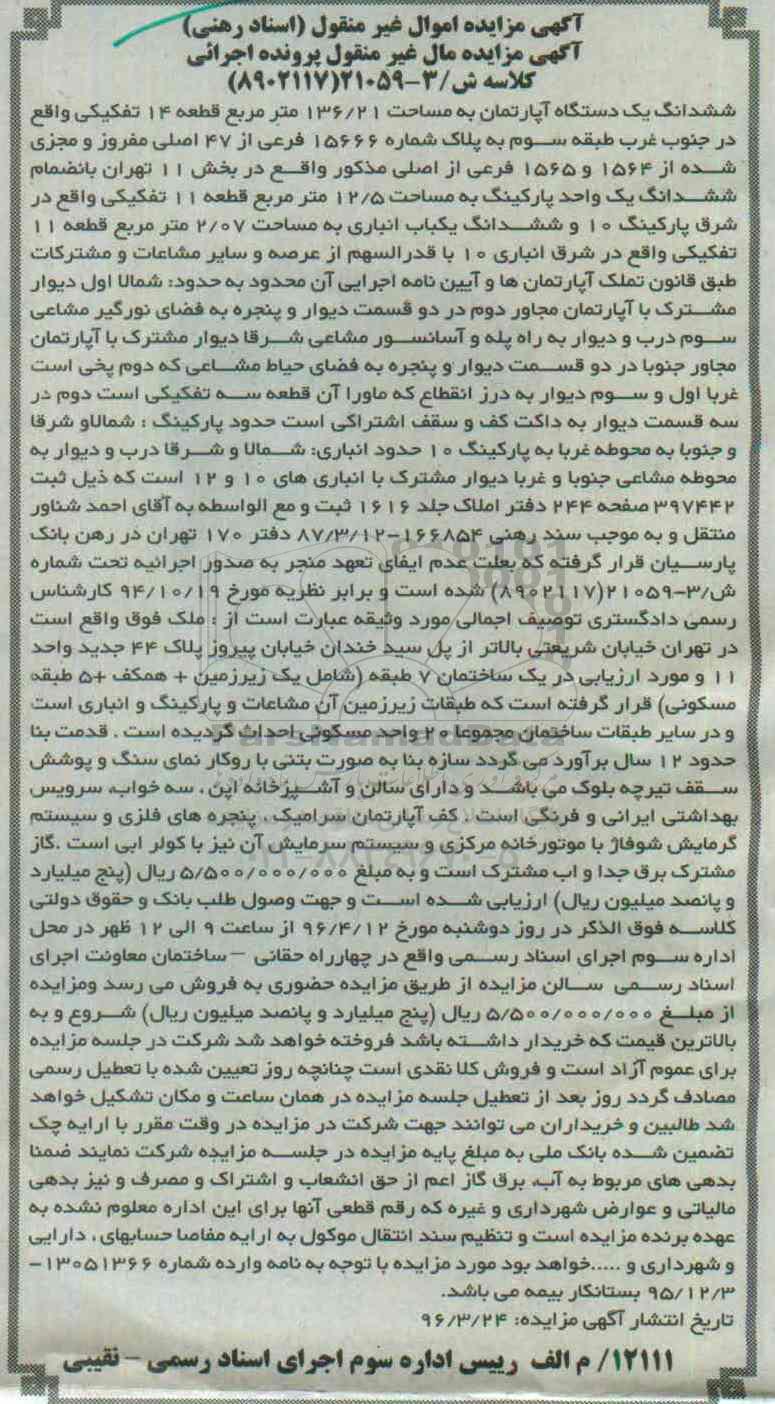 آگهی مزایده اموال غیر منقول (اسناد رهنی)
آگهی مزایده مال غیر منقول پرونده اجرائی
کلاسه ش/۳-۲۱۰۵۹(۸۹۰۲۱۱۷)
ششدانگ یک دستگاه آپارتمان به مساحت ۱۳۶/۲۱ متر مربع قطعه ۱۴ تفکیکی واقع
در جنوب غرب طبقه سوم به پلاک شماره ۱۵۶۶۶ فرعی از ۴۷ اصلی مفروز و مجزی
شده از ۱۵۶۴ و ۱۵۶۵ فرعی از اصلی مذکور واقع در بخش ۱۱ تهران بانضمام
ششدانگ یک واحد پارکینگ به مساحت ۱۲/۵ متر مربع قطعه ۱۱ تفکیکی واقع در
شرق پارکینگ ۱۰ و ششدانگ یکباب انباری به مساحت ۲/۰۷ متر مربع قطعه ۱۱
تفکیکی واقع در شرق انباری ۱۰ با قدرالسهم از عرصه و سایر مشاعات و مشترکات
طبق قانون تملک آپارتمان ها و آیین نامه اجرایی آن محدود به حدود: شمالا اول دیوار
مشترک با آپارتمان مجاور دوم در دو قسمت دیوار و پنجره به فضای نورگیر مشاعی
سوم درب و دیوار به راه پله و آسانسور مشاعی شرقا دیوار مشترک با آپارتمان
مجاور جنوبا در دو قسمت دیوار و پنجره به فضای حیاط مشاعی که دوم پخی است
غربا اول و سوم دیوار به درز انقطاع که ماورا آن قطعه سه تفکیکی است دوم در
سه قسمت دیوار به داکت کف و سقف اشتراکی است حدود پارکینگ : شمالاو شرقا
و جنوبا به محوطه غربا به پارکینگ ۱۰ حدود انباری: شمالا و شرقا درب و دیوار به
محوطه مشاعی جنوبا و غربا دیوار مشترک با انباری های ۱۰ و ۱۲ است که ذیل ثبت
۳۹۷۴۴۲ صفحه ۲۴۴ دفتر املاک جلد ۱۶۱۶ ثبت و مع الواسطه به آقای احمد شناور
منتقل و به موجب سند رهنی ۱۶۶۸۵۴-۸۷/۳/۱۲ دفتر ۱۷۰ تهران در رهن بانک
پارسیان قرار گرفته که بعلت عدم ایفای تعهد منجر به صدور اجرائیه تحت شماره
ش/۳-۲۱۰۵۹(۸۹۰۲۱۱۷) شده است و برابر نظریه مورخ ۹۴/۱۰/۱۹ کارشناس
رسمی دادگستری توصیف اجمالی مورد وثیقه عبارت است از : ملک فوق واقع است
در تهران خیابان شریعتی بالاتر از پل سید خندان خیابان پیروز پلاک ۴۴ جدید واحد
۱۱ و مورد ارزیابی در یک ساختمان ۷ طبقه (شامل یک زیرزمین + همکف +۵ طبقه
مسکونی) قرار گرفته است که طبقات زیرزمین آن مشاعات و پارکینگ و انباری است
و در سایر طبقات ساختمان مجموعا ۲۰ واحد مسکونی احداث گردیده است . قدمت بنا
حدود ۱۲ سال برآورد می گردد سازه بنا به صورت بتنی با روکار نمای سنگ و پوشش
سقف تیرچه بلوک می باشد و دارای سالن و آشپزخانه اپن ، سه خواب، سرویس
بهداشتی ایرانی و فرنگی است . کف آپارتمان سرامیک ، پنجره های فلزی و سیستم
گرمایش شوفاژ با موتورخانه مرکزی و سیستم سرمایش آن نیز با کولر ابی است .گاز
مشترک برق جدا و اب مشترک است و به مبلغ ۵/۵۰۰/۰۰۰/۰۰۰ ریال (پنج میلیارد
و پانصد میلیون ریال) ارزیابی شده است و جهت وصول طلب بانک و حقوق دولتی
کلاسه فوق الذکر در روز دوشنبه مورخ ۹۶/۴/۱۲ از ساعت ۹ الی ۱۲ ظهر در محل
اداره سوم اجرای اسناد رسمی واقع در چهارراه حقانی – ساختمان معاونت اجرای
اسناد رسمی سالن مزایده از طریق مزایده حضوری به فروش می رسد ومزایده
از مبلغ ۵/۵۰۰/۰۰۰/۰۰۰ ریال (پنج میلیارد و پانصد میلیون ریال) شروع و به
بالاترین قیمت که خریدار داشته باشد فروخته خواهد شد شرکت در جلسه مزایده
برای عموم آزاد است و فروش کلا نقدی است چنانچه روز تعیین شده با تعطیل رسمی
مصادف گردد روز بعد از تعطیل جلسه مزایده در همان ساعت و مکان تشکیل خواهد
شد طالبین و خریداران می توانند جهت شرکت در مزایده در وقت مقرر با ارایه چک
تضمین شده بانک ملی به مبلغ پایه مزایده در جلسه مزایده شرکت نمایند ضمنا
بدهی های مربوط به آب، برق گاز اعم از حق انشعاب و اشتراک و مصرف و نیز بدهی
مالیاتی و عوارض شهرداری و غیره که رقم قطعی آنها برای این اداره معلوم نشده به
عهده برنده مزایده است و تنظیم سند انتقال موکول به ارایه مفاصا حسابهای ، دارایی
و شهرداری و .....خواهد بود مورد مزایده با توجه به نامه وارده شماره ۱۳۰۵۱۳۶۶-
۹۵/۱۲/۳ بستانکار بیمه می باشد.
تاریخ انتشار آگهی مزایده: ۹۶/۳/۲۴
۱۲۱۱۱/ م الف رییس اداره سوم اجرای اسناد رسمی – نقیبی